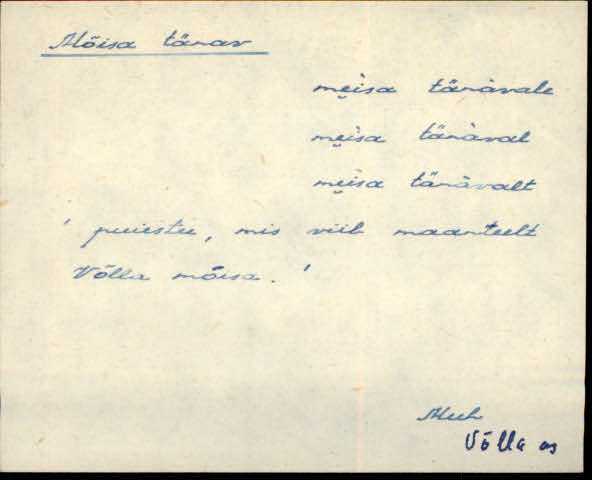 Mõisa tänav
me̮i̬sa tänàvale
me̮i̬sa tänàval
me̮i̬sa tänàvalt
' puiestee, mis viib maanteelt
Võlla mõisa. '
Muh
Võlla as